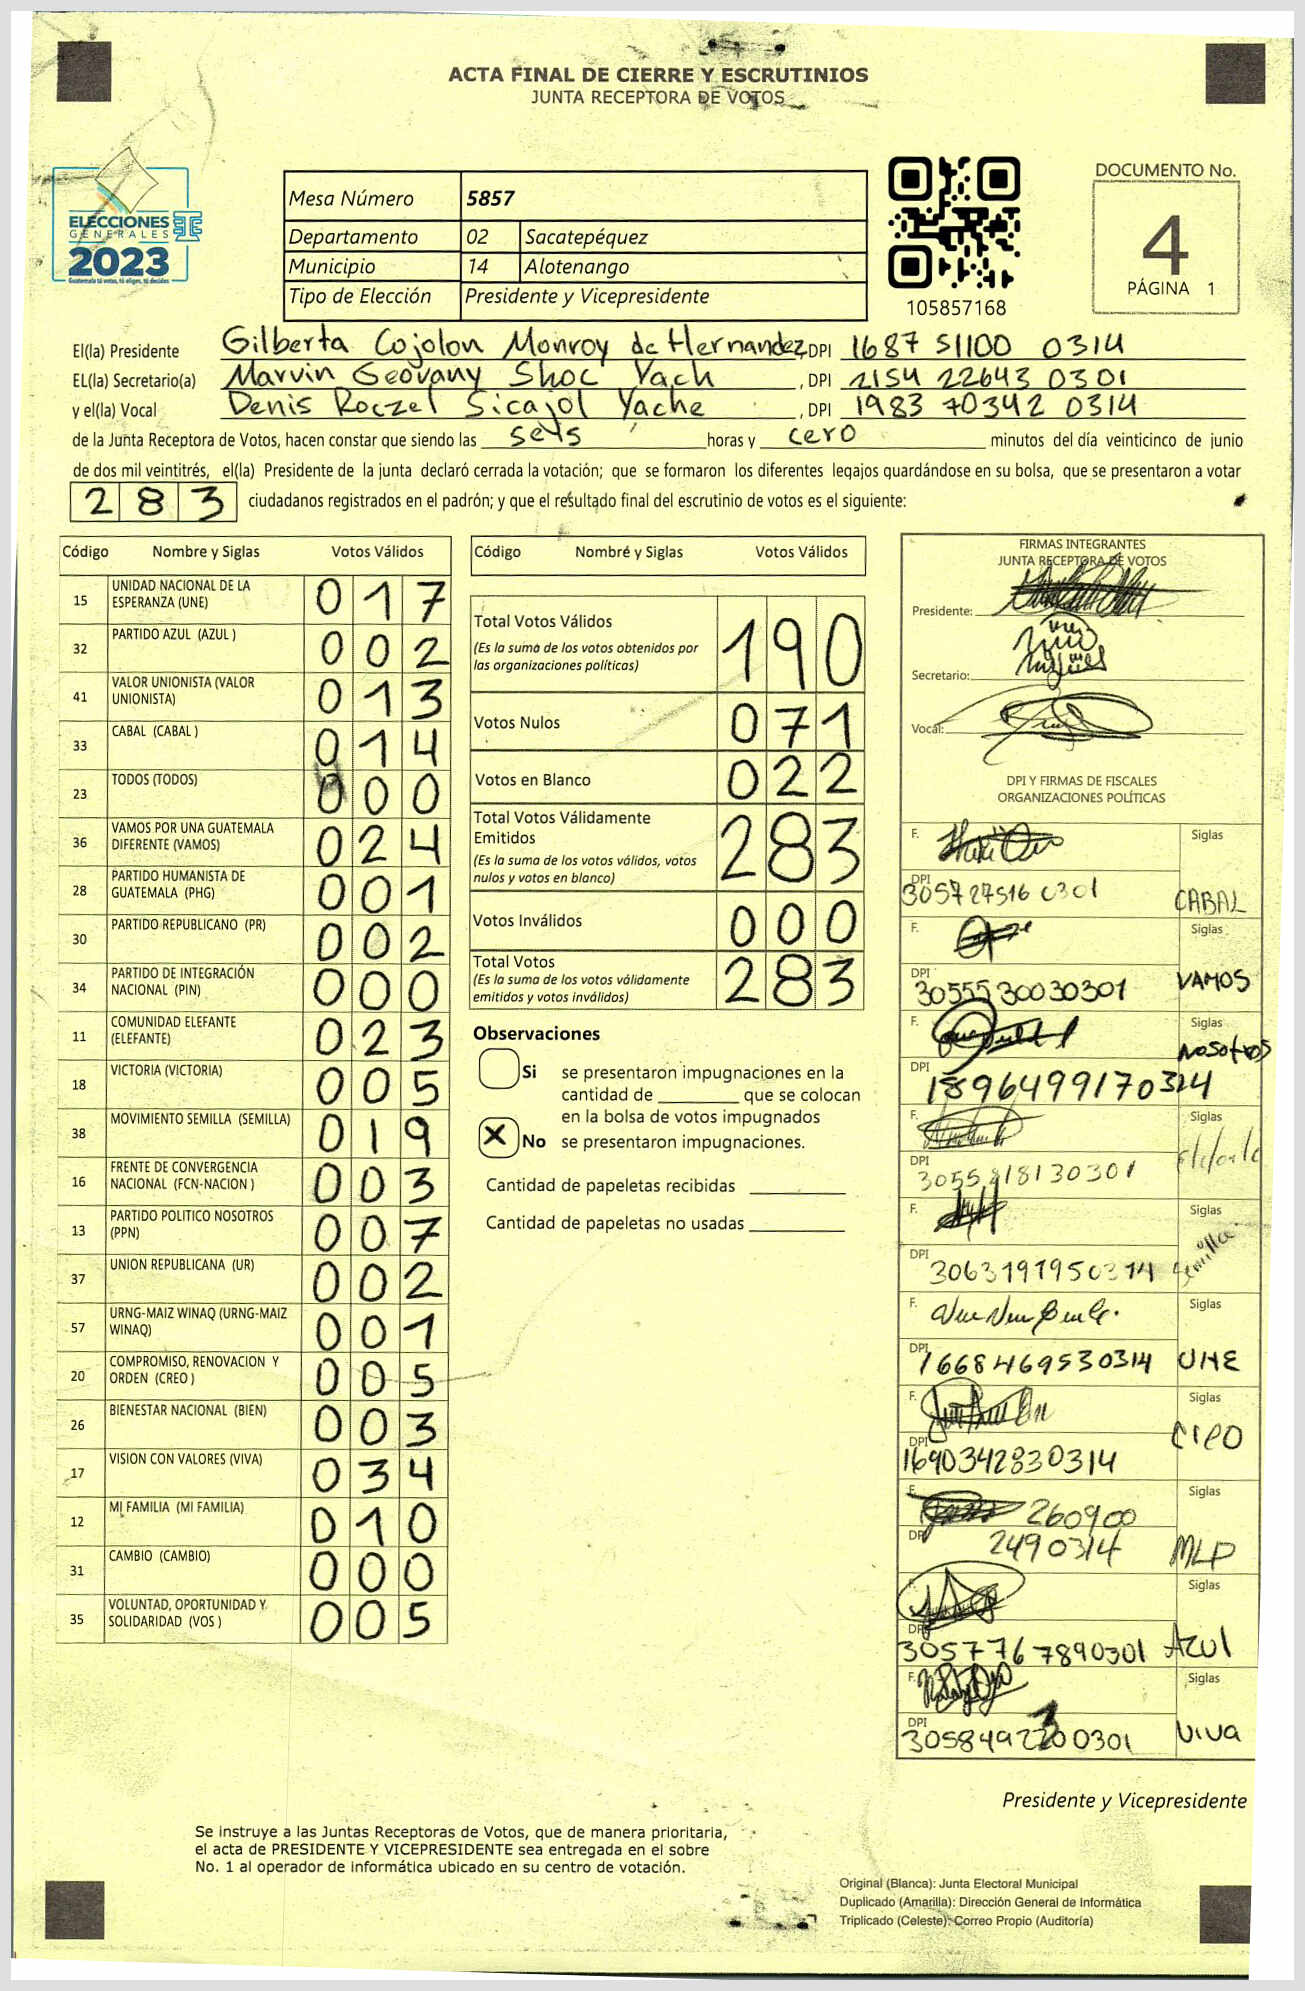 ACTA FINAL DE CIERRE Y ESCRUTINIOS
JUNTA RECEPTORA DE VOTOS
ELECCIONES
GENERALES
2023
Guatemala tú votas, tú eliges, tú decides
Mesa Número 5857
Departamento 02 Sacatepéquez
Municipio 14 Alotenango
Tipo de Elección Presidente y Vicepresidente
105857168
DOCUMENTO No.
4
PÁGINA 1
El(la) Presidente Gilberta Cojolon Monroy de Hernandez, DPI 1687 51100 0314
EL(la) Secretario(a) Marvin Geovany Shoc Yach, DPI 2154 22643 0301
y el(la) Vocal Denis Roczel Sicajol Yache, DPI 1983 70342 0314
de la Junta Receptora de Votos, hacen constar que siendo las seis horas y cero minutos del día veinticinco de junio
de dos mil veintitrés, el(la) Presidente de la junta declaró cerrada la votación; que se formaron los diferentes legajos guardándose en su bolsa, que se presentaron a votar
283 ciudadanos registrados en el padrón; y que el resultado final del escrutinio de votos es el siguiente:
Código Nombre y Siglas Votos Válidos
15 UNIDAD NACIONAL DE LA ESPERANZA (UNE) 017
32 PARTIDO AZUL (AZUL ) 002
41 VALOR UNIONISTA (VALOR UNIONISTA) 013
33 CABAL (CABAL ) 014
23 TODOS (TODOS) 000
36 VAMOS POR UNA GUATEMALA DIFERENTE (VAMOS) 024
28 PARTIDO HUMANISTA DE GUATEMALA (PHG) 001
30 PARTIDO REPUBLICANO (PR) 002
34 PARTIDO DE INTEGRACIÓN NACIONAL (PIN) 000
11 COMUNIDAD ELEFANTE (ELEFANTE) 023
18 VICTORIA (VICTORIA) 005
38 MOVIMIENTO SEMILLA (SEMILLA) 019
16 FRENTE DE CONVERGENCIA NACIONAL (FCN-NACION ) 003
13 PARTIDO POLITICO NOSOTROS (PPN) 007
37 UNION REPUBLICANA (UR) 002
57 URNG-MAIZ WINAQ (URNG-MAIZ WINAQ) 001
20 COMPROMISO, RENOVACION Y ORDEN (CREO ) 005
26 BIENESTAR NACIONAL (BIEN) 003
17 VISION CON VALORES (VIVA) 034
12 MI FAMILIA (MI FAMILIA) 010
31 CAMBIO (CAMBIO) 000
35 VOLUNTAD, OPORTUNIDAD Y SOLIDARIDAD (VOS ) 005
Código Nombre y Siglas Votos Válidos
Total Votos Válidos 190
(Es la suma de los votos obtenidos por
las organizaciones políticas)
Votos Nulos 071
Votos en Blanco 022
Total Votos Válidamente
Emitidos 283
(Es la suma de los votos válidos, votos
nulos y votos en blanco)
Votos Inválidos 000
Total Votos 283
(Es la suma de los votos válidamente
emitidos y votos inválidos)
Observaciones
Si se presentaron impugnaciones en la
cantidad de ________ que se colocan
en la bolsa de votos impugnados
X No se presentaron impugnaciones.
Cantidad de papeletas recibidas
Cantidad de papeletas no usadas
FIRMAS INTEGRANTES
JUNTA RECEPTORA DE VOTOS
Presidente:
Secretario:
Vocal:
DPI Y FIRMAS DE FISCALES
ORGANIZACIONES POLÍTICAS
F. Siglas
DPI 305727516 0301 CABAL
F. Siglas
DPI 3055530030301 VAMOS
F. Siglas
NOSOTROS
DPI 1896499170314
F. Siglas
DPI 3055818130301
F. Siglas
DPI 3063191950314 Semilla
F. Siglas
DPI 1668469530314 UNE
F. Siglas
DPI 1690342830314 Creo
F. Siglas
260900
DPI 2490314 MLP
F. Siglas
DPI 3057767890301 AZUl
F. Siglas
DPI VIVA
Presidente y Vicepresidente
Se instruye a las Juntas Receptoras de Votos, que de manera prioritaria,
el acta de PRESIDENTE Y VICEPRESIDENTE sea entregada en el sobre
No. 1 al operador de informática ubicado en su centro de votación.
Original (Blanca): Junta Electoral Municipal
Duplicado (Amarilla): Dirección General de Informática
Triplicado (Celeste): Correo Propio (Auditoría)